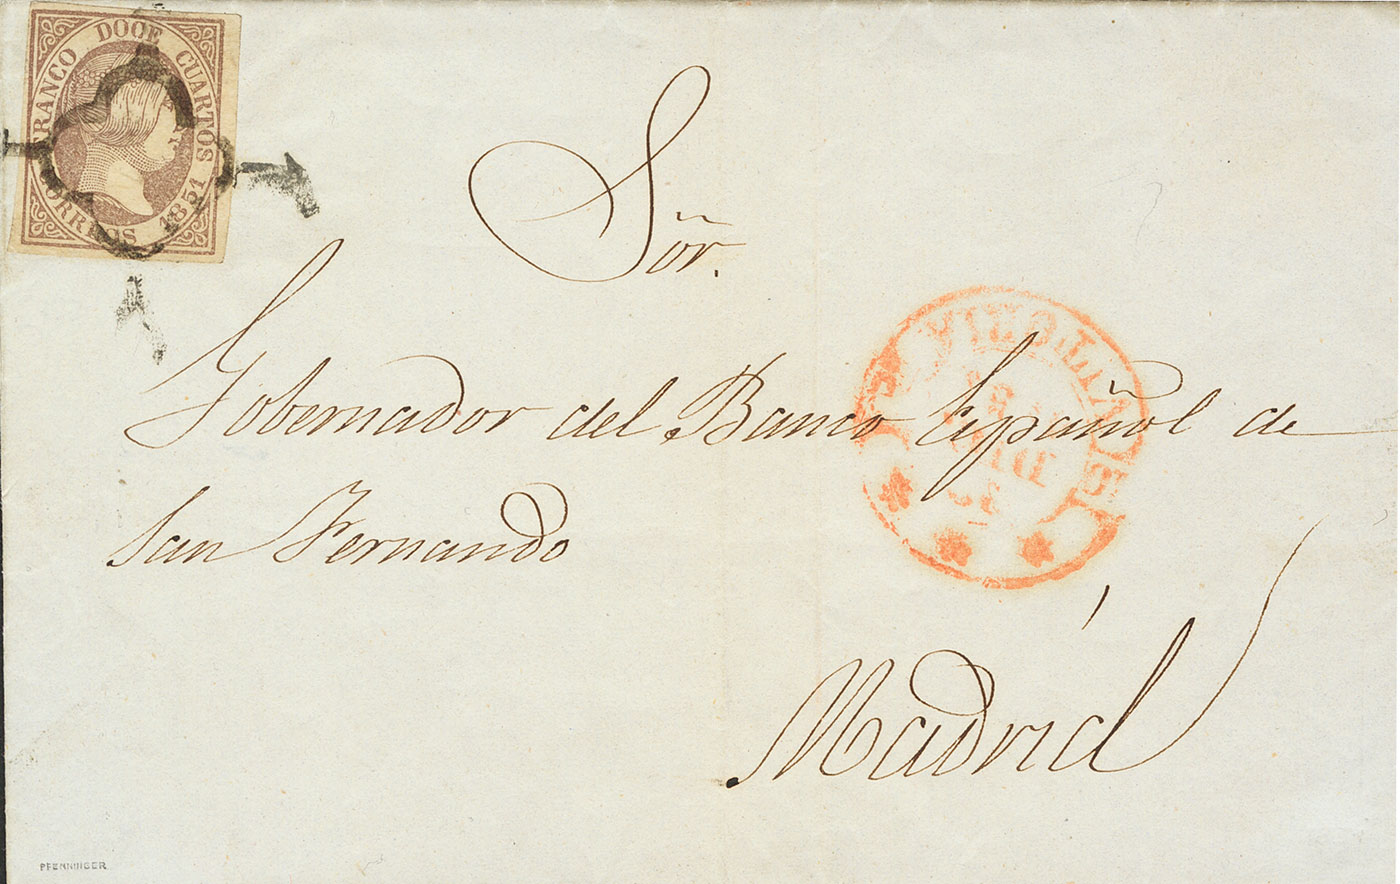 FRANCO DOCE CUARTOS
CORREOS 1851
Sor.
Gobernador del Banco Español de
San Fernando
Madrid
PFENNINGER